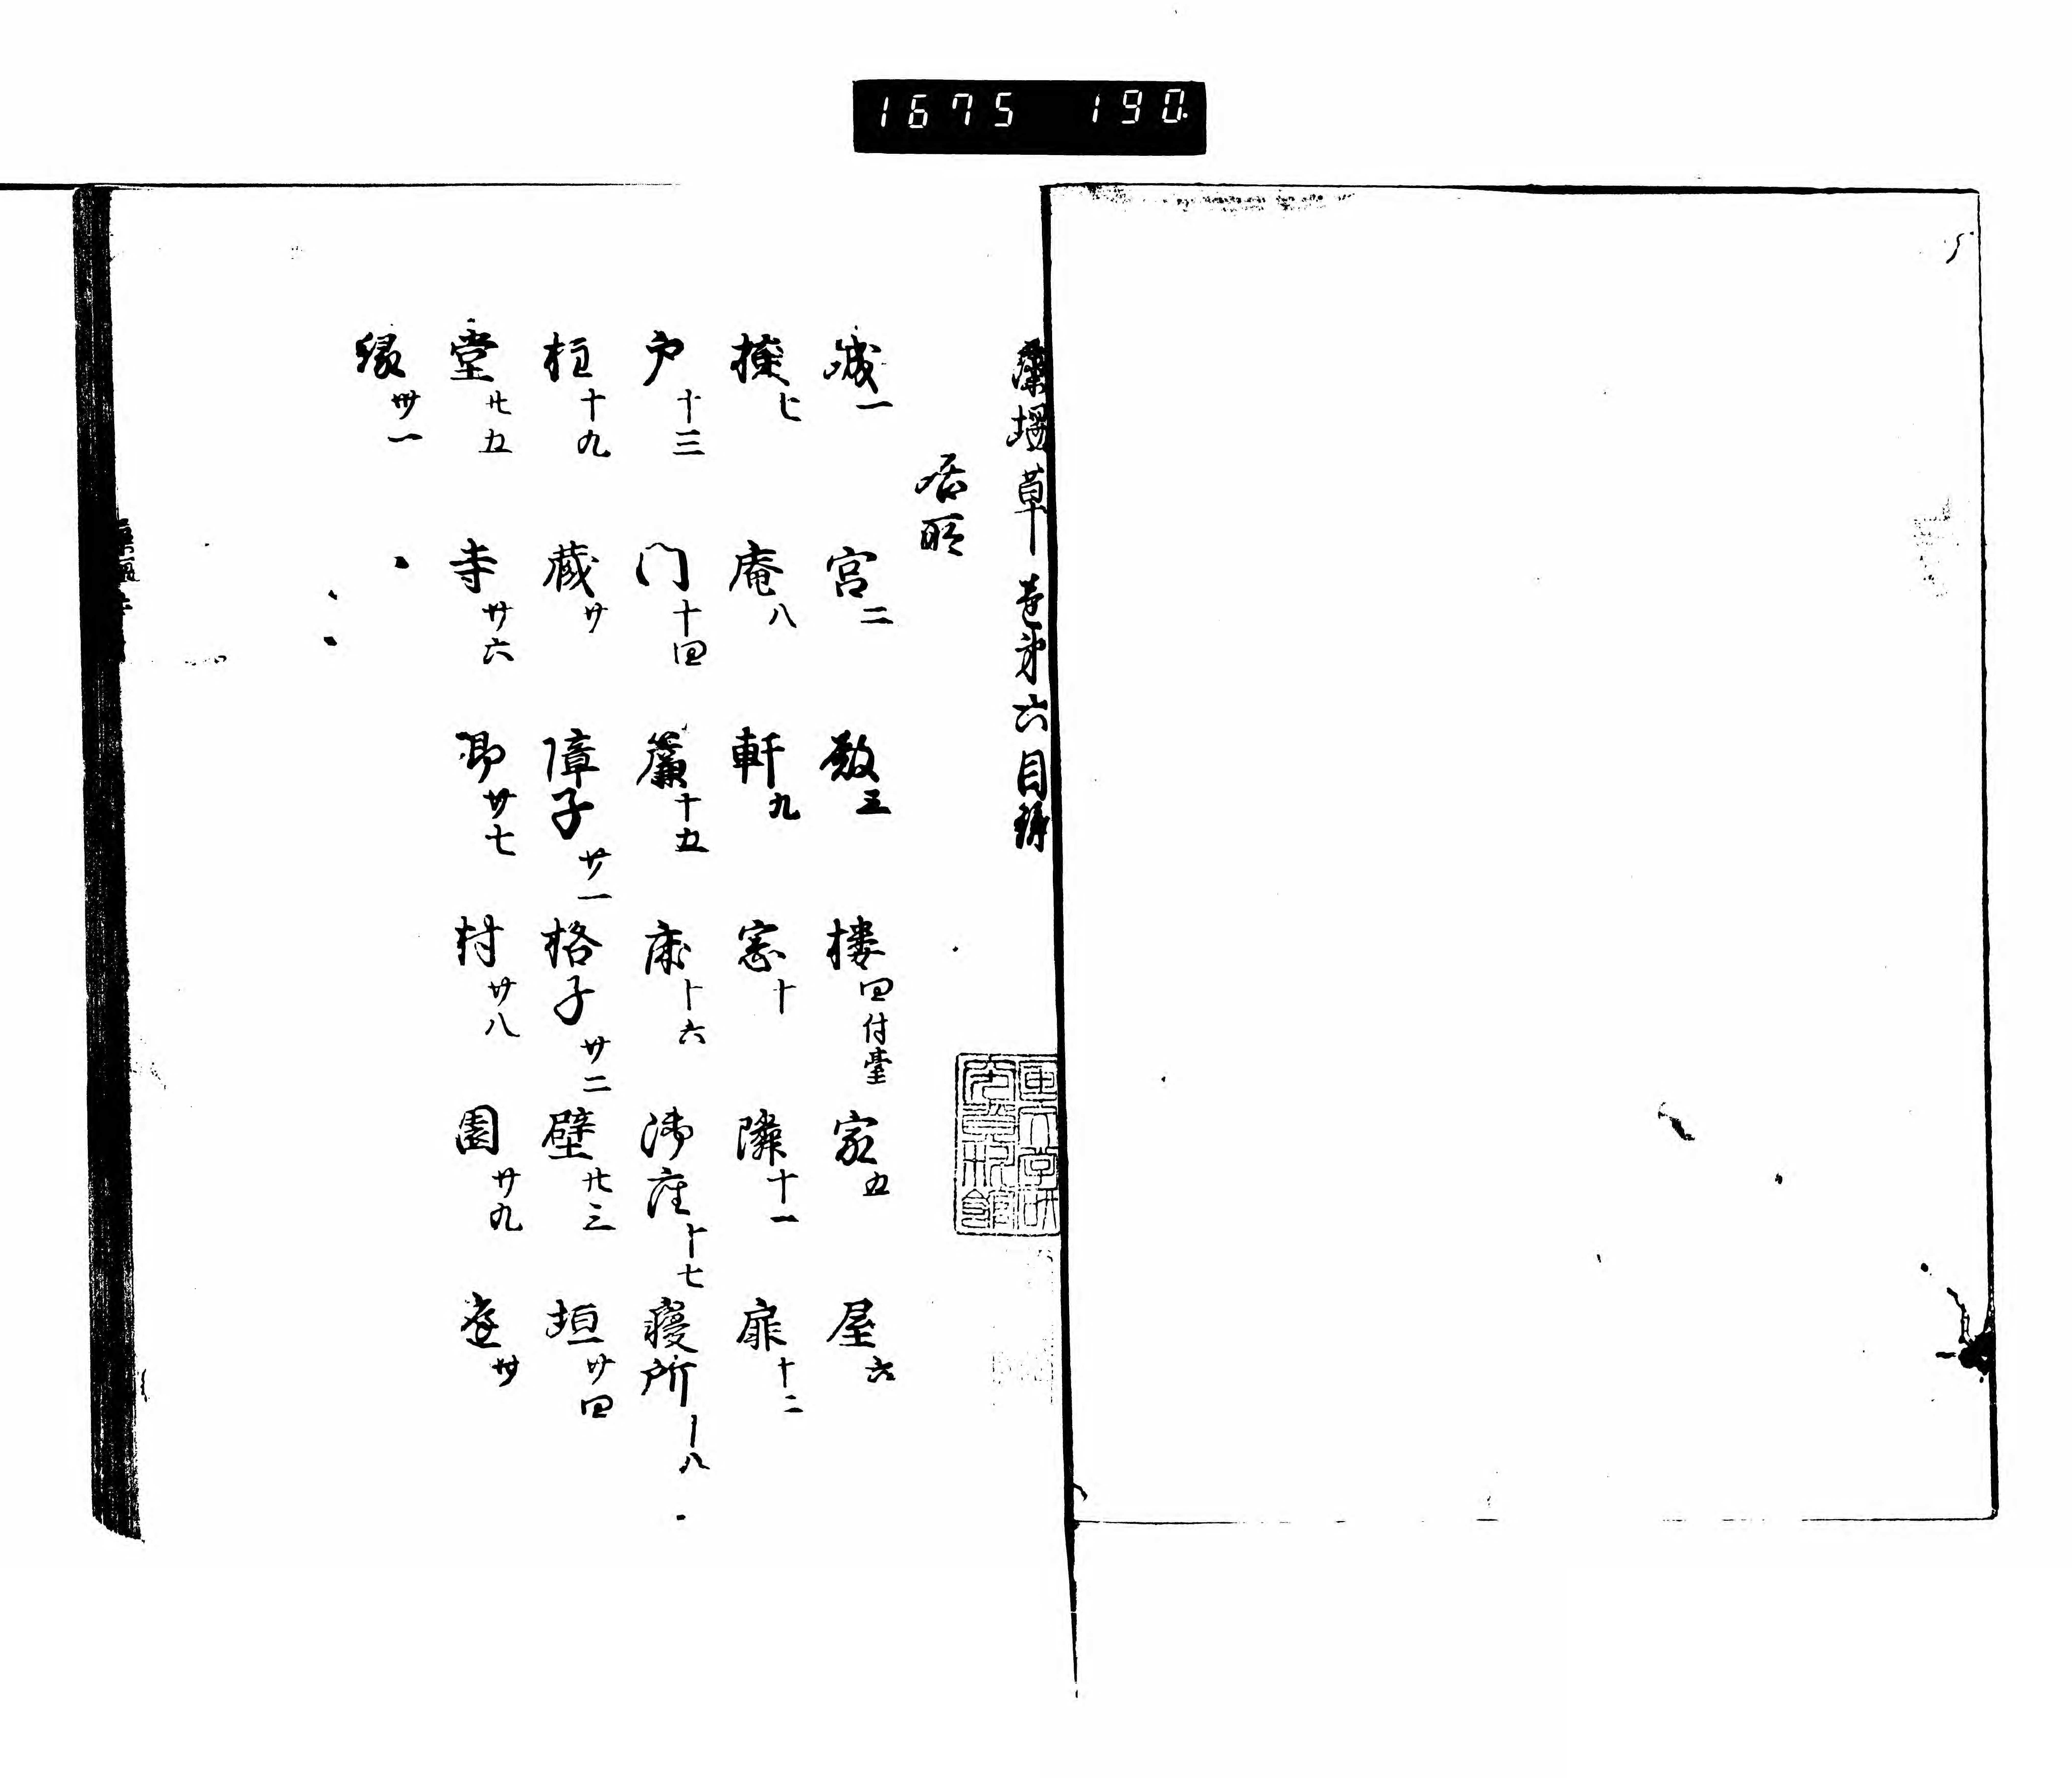 1675 190
藻塩草 巻第六目録
居所
城一 宮二 殿三 楼四付臺 家五 屋六
樣七 庵八 軒九 窓十 隣十一 扉十二
戸十三 门十四 簾十五 床十六 御座十七 寝所十八
柱十九 蔵廿 障子廿一 格子廿二 壁廿三 垣廿四
堂廿五 寺廿六 廿七 村廿八 園廿九 庭卅
縁卅一